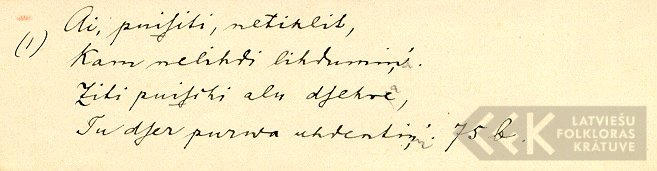 (1) Ai, puisiti, netiklit,
Kam nelihdi lihduminį.
Ziti puischi alu dsehre,
Tu dser purwa uhdentiņ. 75 b.
LATVIEŠU
FOLKLORAS
KRĀTUVE